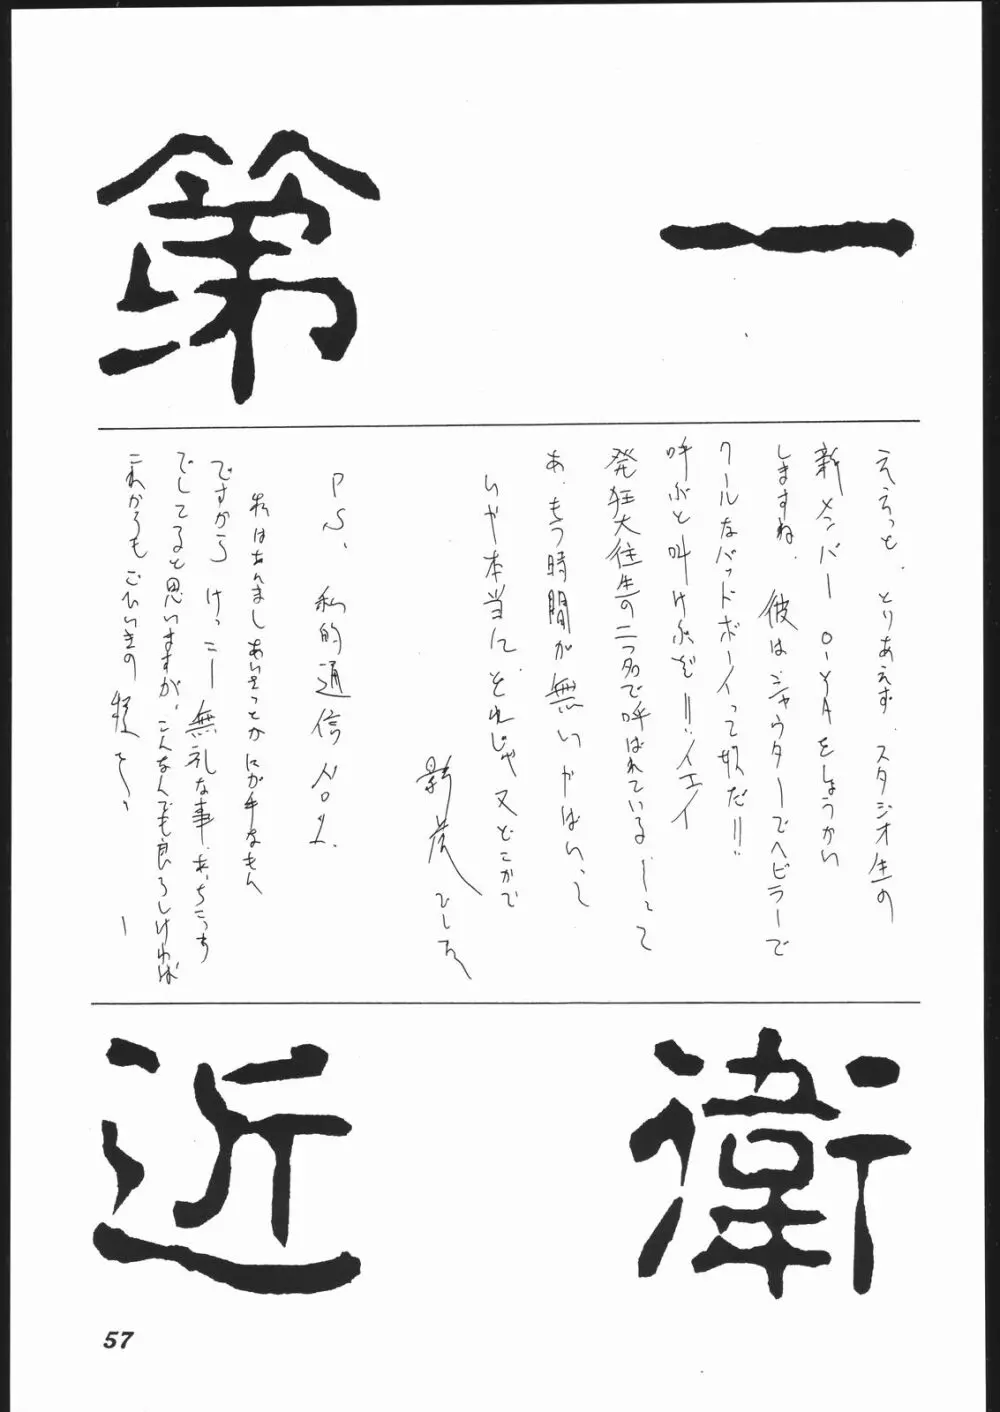 第一
ええっと、とりあえず、スタジオ生の
新メンバー O-YAをしょうかい
しますね、彼はシャウターでヘビラーで
クールなバッドボーイって奴だ!!
呼ぶと叫けぶぞ!!イエイ
発狂大往生の二つ名で呼ばれているしーって
あ、もう時間が無いやばいって
いや本当に、それじゃ又どこかで
影 ひした
P.S、私的通信 No.1.
私はあんましあいそっとかにが手なもん
ですから けっこー無礼な事、あっちこっち
でしてると思いますが、こんなんでも良ろしければ
これからもごひいきの程を〜、
ー
近衛
57